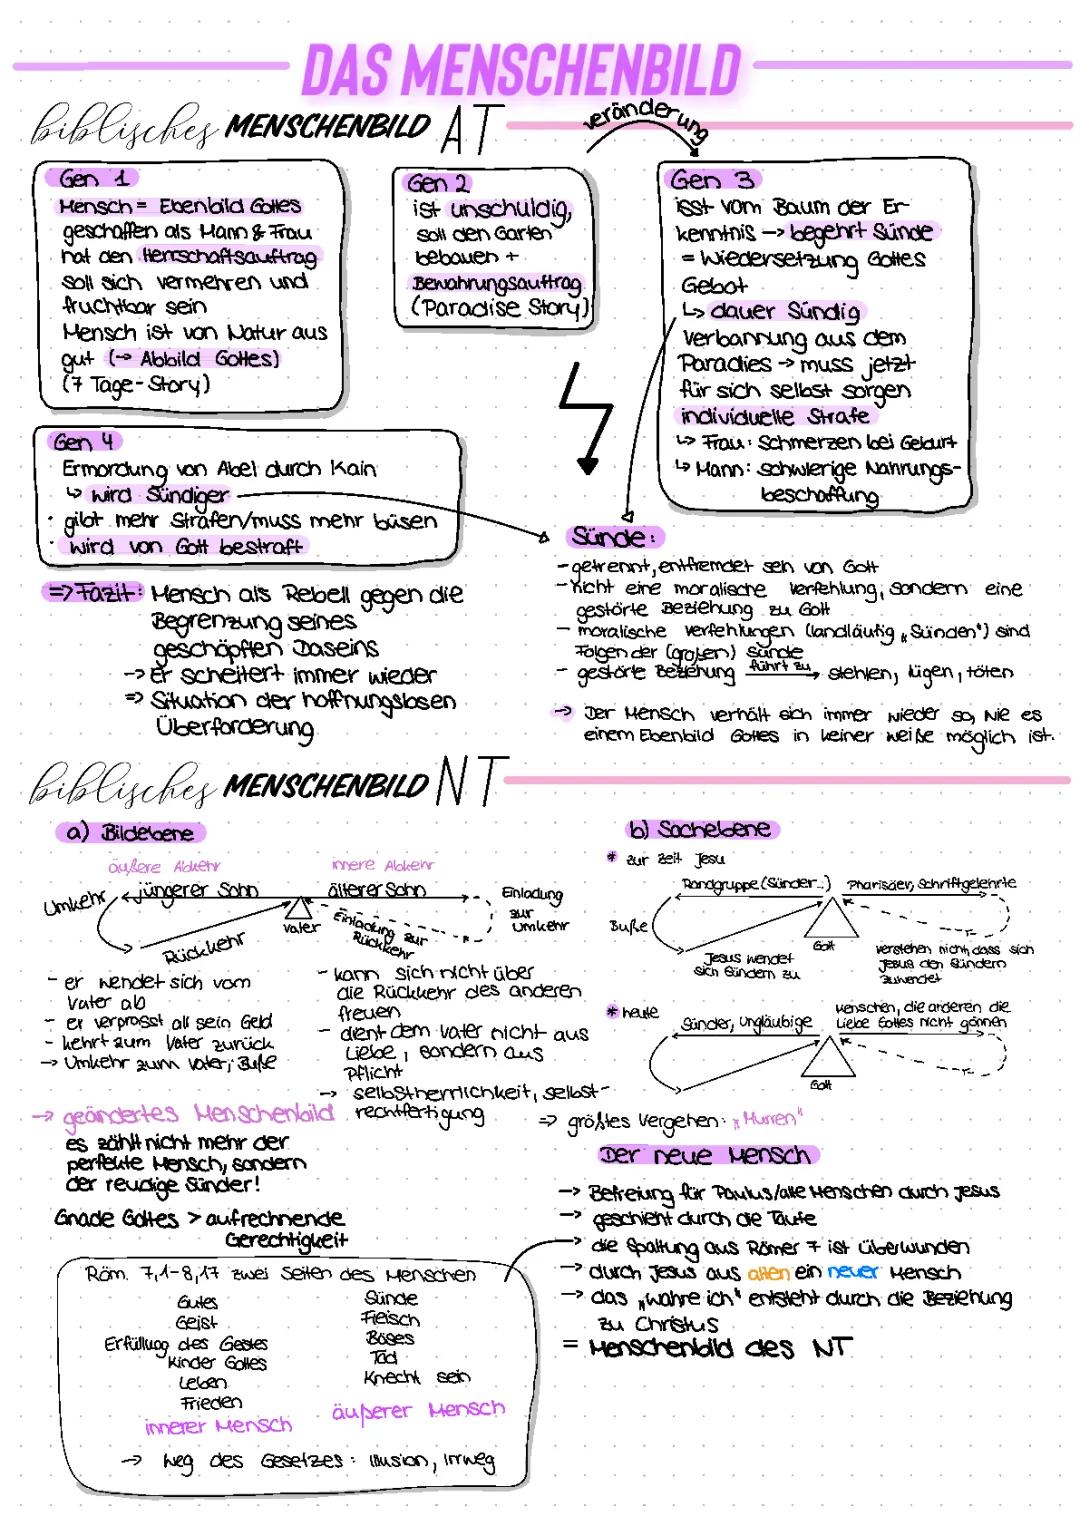 DAS MENSCHENBILD
biblisches MENSCHENBILD AT
veränderung
Gen 1
Mensch = Ebenbild Gottes
geschaffen als Mann & Frau
hat den Herrschaftsauftrag
soll sich vermehren und
fruchtbar sein
Mensch ist von Natur aus
gut (→ Abbild Gottes)
(7 Tage-Story)
Gen 2
ist unschuldig,
soll den Garten
bebauen +
Bewahrungsauftrag
(Paradise Story)
Gen 3
isst vom Baum der Er-
kenntnis → begehrt Sünde
= Wiedersetzung Gottes
Gebot
↳ dauer Sündig
Verbannung aus dem
Paradies → muss jetzt
für sich selbst sorgen
individuelle Strafe
↳ Frau: Schmerzen bei Geburt
↳ Mann: schwierige Nahrungs-
beschaffung
Gen 4
Ermordung von Abel durch Kain
↳ wird Sündiger
· gibt mehr Strafen/muss mehr büsen
· wird von Gott bestraft
=> Fazit: Mensch als Rebell gegen die
Begrenzung seines
geschöpften Daseins
→ Er scheitert immer wieder
=> Situation der hoffnungslosen
Überforderung
Sünde:
- getrennt, entfremdet sein von Gott
- Nicht eine moralische Verfehlung, sondern eine
gestörte Beziehung zu Gott
- moralische Verfehlungen (landläufig „Sünden") sind
Folgen der (großen) Sünde
- gestörte Beziehung führt zu → stehlen, lügen, töten
→ Der Mensch verhält sich immer wieder so, wie es
einem Ebenbild Gottes in keiner weiße möglich ist.
biblisches MENSCHENBILD NT
a) Bildebene
äußere Abkehr
innere Abkehr
Umkehr
jüngerer Sohn
älterer Sohn
Einladung
zur
Umkehr
Vater
Rückkehr
Einladung zur
Rückkehr
- er wendet sich vom
Vater ab
- er verprasst all sein Geld
- kehrt zum Vater zurück
→ Umkehr zum Vater; Buße
- kann sich nicht über
die Rückkehr des anderen
freuen
- dient dem Vater nicht aus
Liebe, sondern aus
Pflicht
→ selbstherrlichkeit, selbst-
rechtfertigung
→ geändertes Menschenbild
es zählt nicht mehr der
perfekte Mensch, sondern
der reudige Sünder!
Gnade Gottes > aufrechnende
Gerechtigkeit
b) Sachebene
* zur Zeit Jesu
Randgruppe (Sünder..)
Pharisäer, Schriftgelehrte
Buße
Gott
Jesus wendet
sich Sündern zu
verstehen nicht, dass sich
Jesus den Sündern
zuwendet
* heute
Sünder, Ungläubige
Menschen, die anderen die
Liebe Gottes nicht gönnen
Gott
=> größtes Vergehen: „Murren"
Der neue Mensch
→ Befreiung für Paulus/alle Menschen durch Jesus
→ geschieht durch die Taufe
→ die Spaltung aus Römer 7 ist überwunden
→ durch Jesus aus alten ein neuer Mensch
→ das „wahre ich" entsteht durch die Beziehung
zu Christus
= Menschenbild des NT
Röm. 7,1-8,17 zwei Seiten des Menschen
Gutes
Geist
Erfüllung des Gesetes
Kinder Gottes
Leben
Frieden
innerer Mensch
Sünde
Fleisch
Böses
Tod
Knecht sein
äußerer Mensch
→ Weg des Gesetzes: Illusion, Irrweg